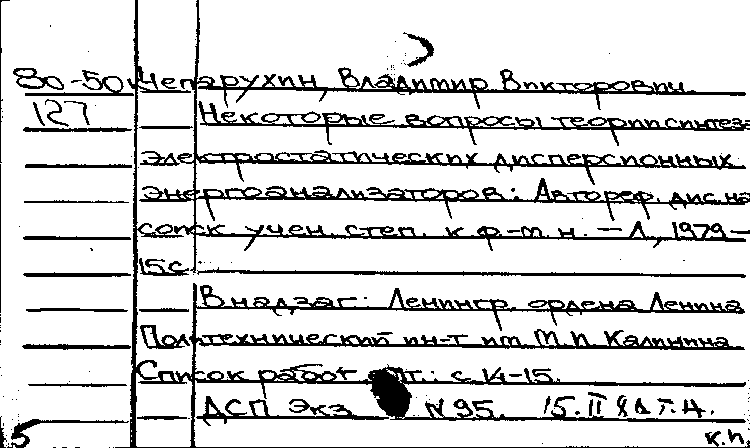 80-50к Чепарухин, Владимир Викторович.
127 Некоторые вопросы теории синтеза
электростатических дисперсионных
энергоанализаторов: Автореф. дис. на
соиск. учен. степ. к. ф-м. н. — Л., 1979 —
15 с
В надзаг: Ленингр. ордена Ленина
Политехнический ин-т им. М. И. Калинина
Список работ авт.: с. 14-15.
ДСП Экз N 95. 15.II
5 к.п.